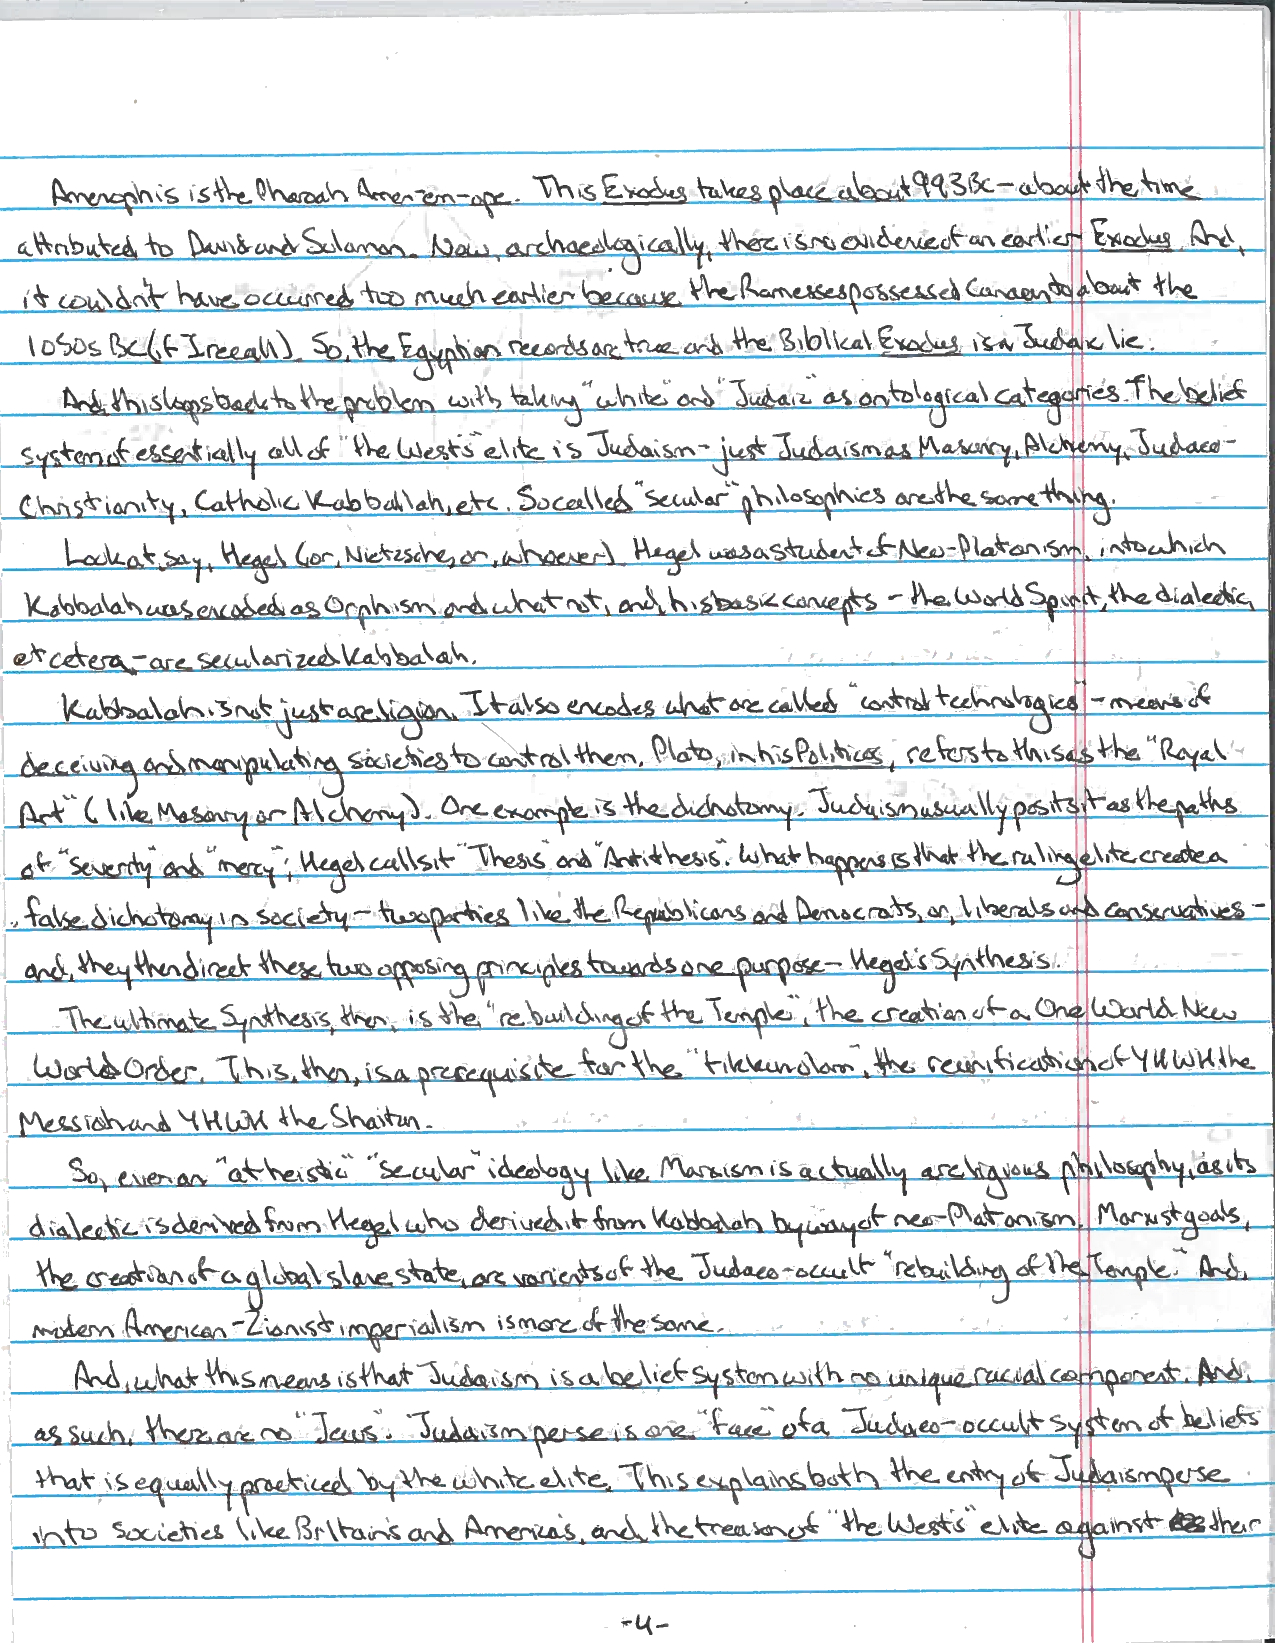 Amenophis is the Pharoah Amen-em-ope. This Exodus takes place about 993 BC - about the time
attributed to David and Solomon. Now, archaeologically, there is no evidence of an earlier Exodus. And,
it couldn't have occurred too much earlier because the Ramesses possessed Canaan to about the
1050s BC (if I recall). So, the Egyptian records are true and the Biblical Exodus is a Judaic lie.
And, this loops back to the problem with taking "white" and "Judaic" as ontological categories. The belief
system of essentially all of "the West's" elite is Judaism - just Judaism as Masonry, Alchemy, Judaeo-
Christianity, Catholic Kabballah, etc. So called "secular" philosophies are the same thing.
Look at, say, Hegel (or, Nietzsche, or, whoever). Hegel was a student of Neo-Platonism, into which
Kabbalah was encoded as Orphism and what not, and, his basic concepts - the World Spirit, the dialectic,
et cetera - are secularized Kabbalah.
Kabbalah is not just a religion. It also encodes what are called "control technologies" - means of
deceiving and manipulating societies to control them. Plato, in his Politicos, refers to this as the "Royal
Art" (like Masonry or Alchemy). One example is the dichotomy. Judaism usually posits it as the paths
of "severity" and "mercy"; Hegel calls it "Thesis" and "Antithesis". What happens is that the ruling elite create a
false dichotomy in society - two parties like the Republicans and Democrats, or, liberals and conservatives -
and, they then direct these two opposing principles towards one purpose - Hegel's Synthesis.
The ultimate Synthesis, then, is the "rebuilding of the Temple", the creation of a One World New
World Order. This, then, is a prerequisite for the "tikkun olam", the reunification of YHWH the
Messiah and YHWH the Shaitan.
So, even an "atheistic" "secular" ideology like Marxism is actually a religious philosophy, as its
dialectic is derived from Hegel who derived it from Kabbalah by way of neo-Platonism. Marxist goals,
the creation of a global slave state, are varients of the Judaeo-occult "rebuilding of the Temple". And,
modern American-Zionist imperialism is more of the same.
And, what this means is that Judaism is a belief system with no unique racial component. And,
as such, there are no "Jews". Judaism per se is one "face" of a Judaeo-occult system of beliefs
that is equally practiced by the white elite. This explains both the entry of Judaism per se
into societies like Britain's and America's, and, the treason of "the West's" elite against their
-4-